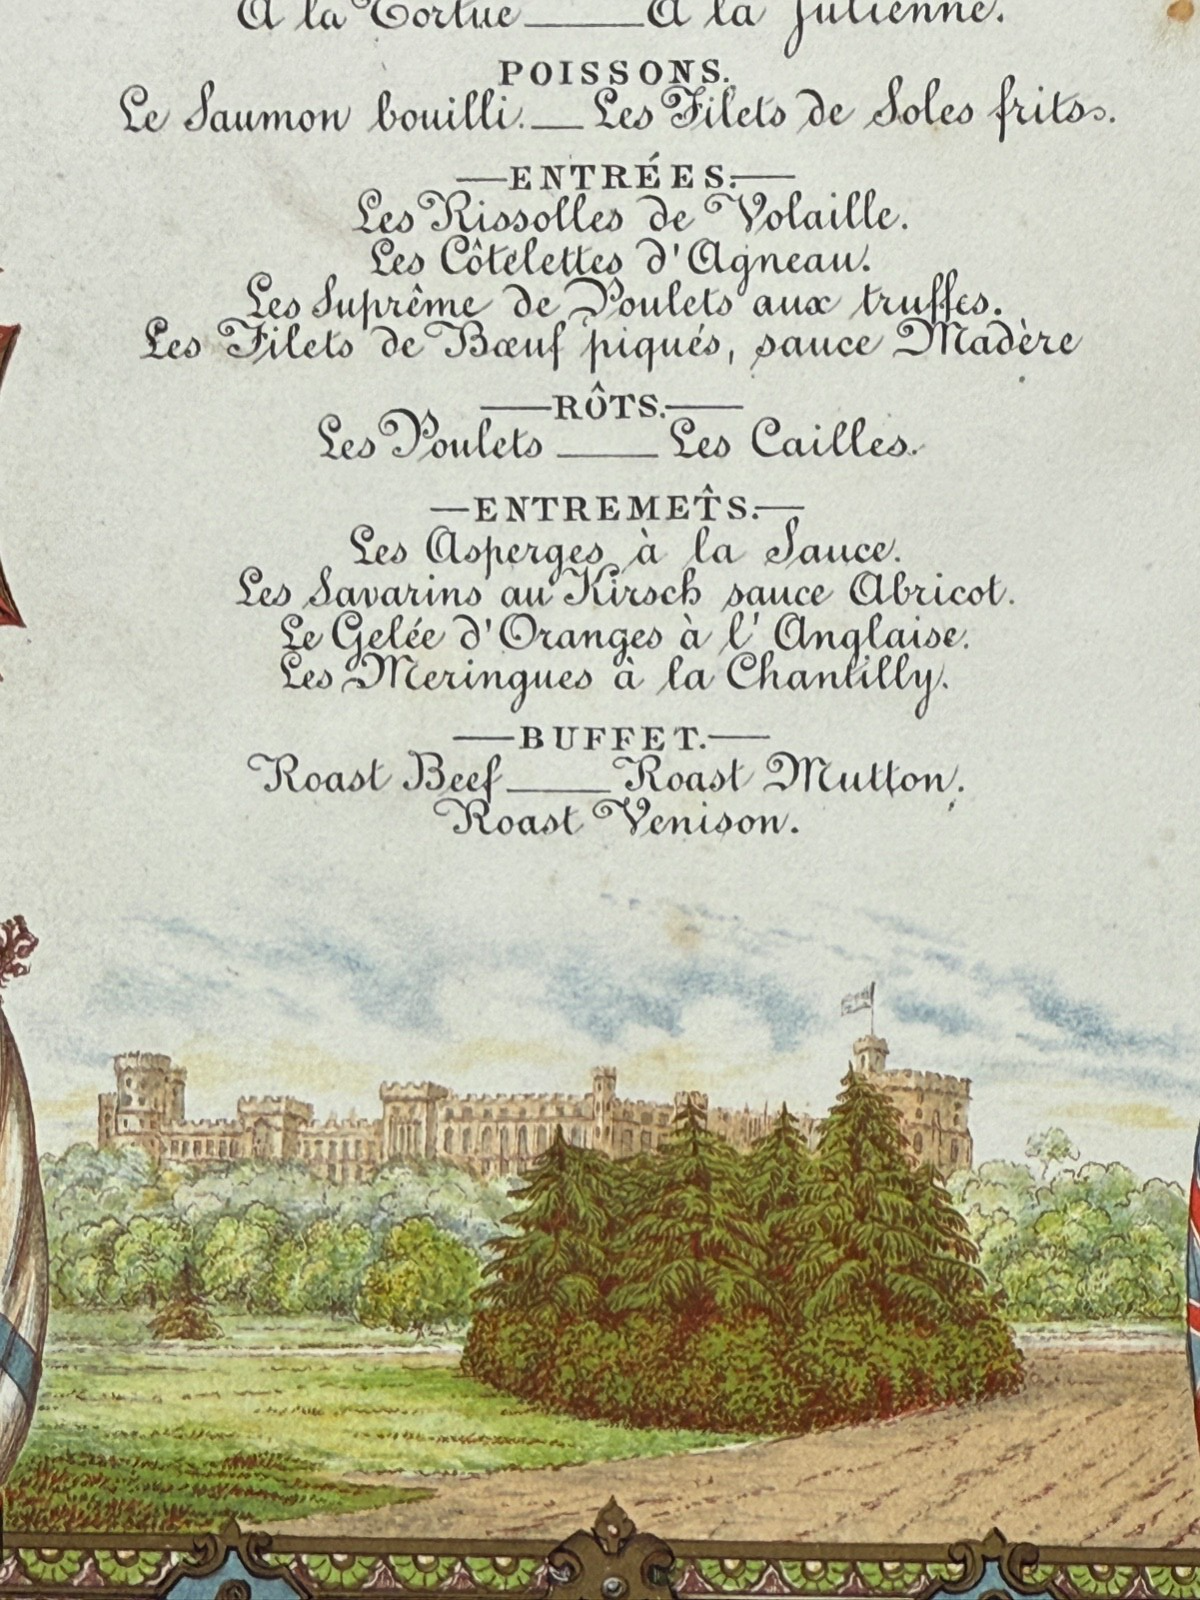 À la Tortue____À la Julienne.
POISSONS.
Le Saumon bouilli.__Les Filets de Soles frits.
—ENTRÉES.—
Les Rissolles de Volaille.
Les Côtelettes d'Agneau.
Les Suprême de Poulets aux truffes.
Les Filets de Bœuf piqués, sauce Madère
—RÔTS.—
Les Poulets ____ Les Cailles.
—ENTREMET̂S.—
Les Asperges à la Sauce.
Les Savarins au Kirsch sauce Abricot.
Le Gelée d'Oranges à l'Anglaise.
Les Meringues à la Chantilly.
—BUFFET.—
Roast Beef____Roast Mutton.
Roast Venison.